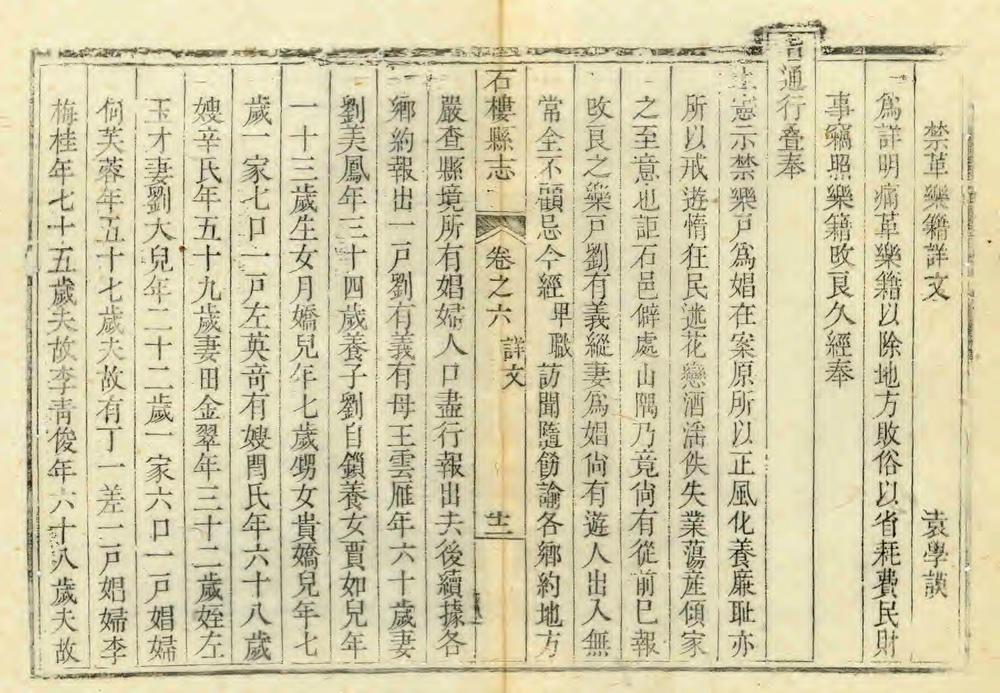 禁革樂籍詳文 袁學謨
爲詳明痛革樂籍以除地方敗俗以省耗費民財
事竊照樂籍改良久經奉
旨通行叠奉
憲示禁樂戸爲娼在案原所以正風化養廉耻亦
所以戒遊惰狂民迷花戀酒滛佚失業蕩産傾家
之至意也詎石邑僻處山隅乃竟尙有從前已報
改良之樂戸劉有義縱妻爲娼尙有遊人出入無
常全不顧忌今經卑職訪聞隨飭諭各鄉約地方
石樓縣志 卷之六 詳文 廿二
嚴查縣境所有娼婦人口盡行報出去後續據各
鄉約報出一戸劉有義有母王雲雁年六十歲妻
劉美鳳年三十四歲養子劉自鎖養女賈如兒年
一十三歲生女月嬌兒年七歲甥女貴嬌兒年七
歲一家七口一戸左英竒有嫂閆氏年六十八歲
嫂辛氏年五十九歲妻田金翠年三十二歲姪左
玉才妻劉大兒年二十二歲一家六口一戸娼婦
何芙蓉年五十七歲夫故有丁一差一戸娼婦李
梅桂年七十五歲夫故李青俊年六十八歲夫故